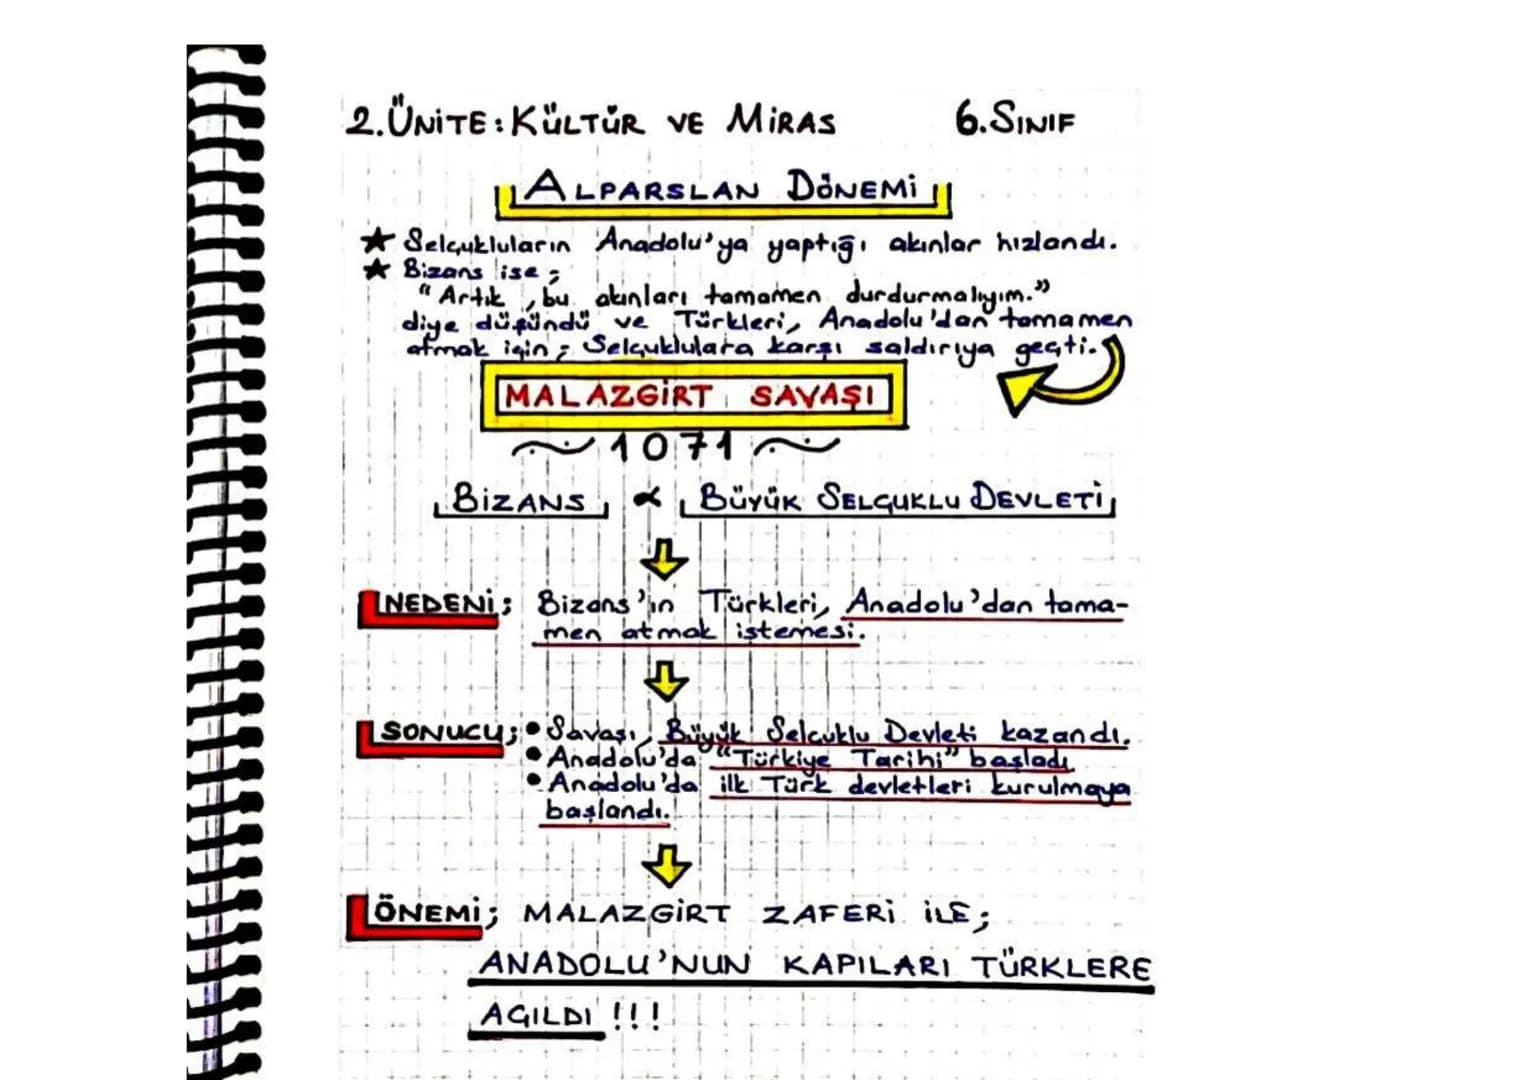 2.ÜNİTE: KÜLTÜR VE MİRAS 6.SINIF
ALPARSLAN DÖNEMİ
★ Selçukluların Anadolu'ya yaptığı akınlar hızlandı.
★ Bizans ise;
"Artık, bu akınları tamamen durdurmalıyım."
diye düşündü ve Türkleri, Anadolu'dan tamamen
atmak için; Selçuklulara karşı saldırıya geçti.
MALAZGİRT SAVAŞI
~ 1071 ~
BİZANS X BÜYÜK SELÇUKLU DEVLETİ
NEDENİ; Bizans'ın Türkleri, Anadolu'dan tama-
men atmak istemesi.
SONUCU; • Savaşı, Büyük Selçuklu Devleti kazandı.
• Anadolu'da "Türkiye Tarihi" başladı
• Anadolu'da ilk Türk devletleri kurulmaya
başlandı.
ÖNEMİ; MALAZGİRT ZAFERİ İLE;
ANADOLU'NUN KAPILARI TÜRKLERE
AÇILDI !!!